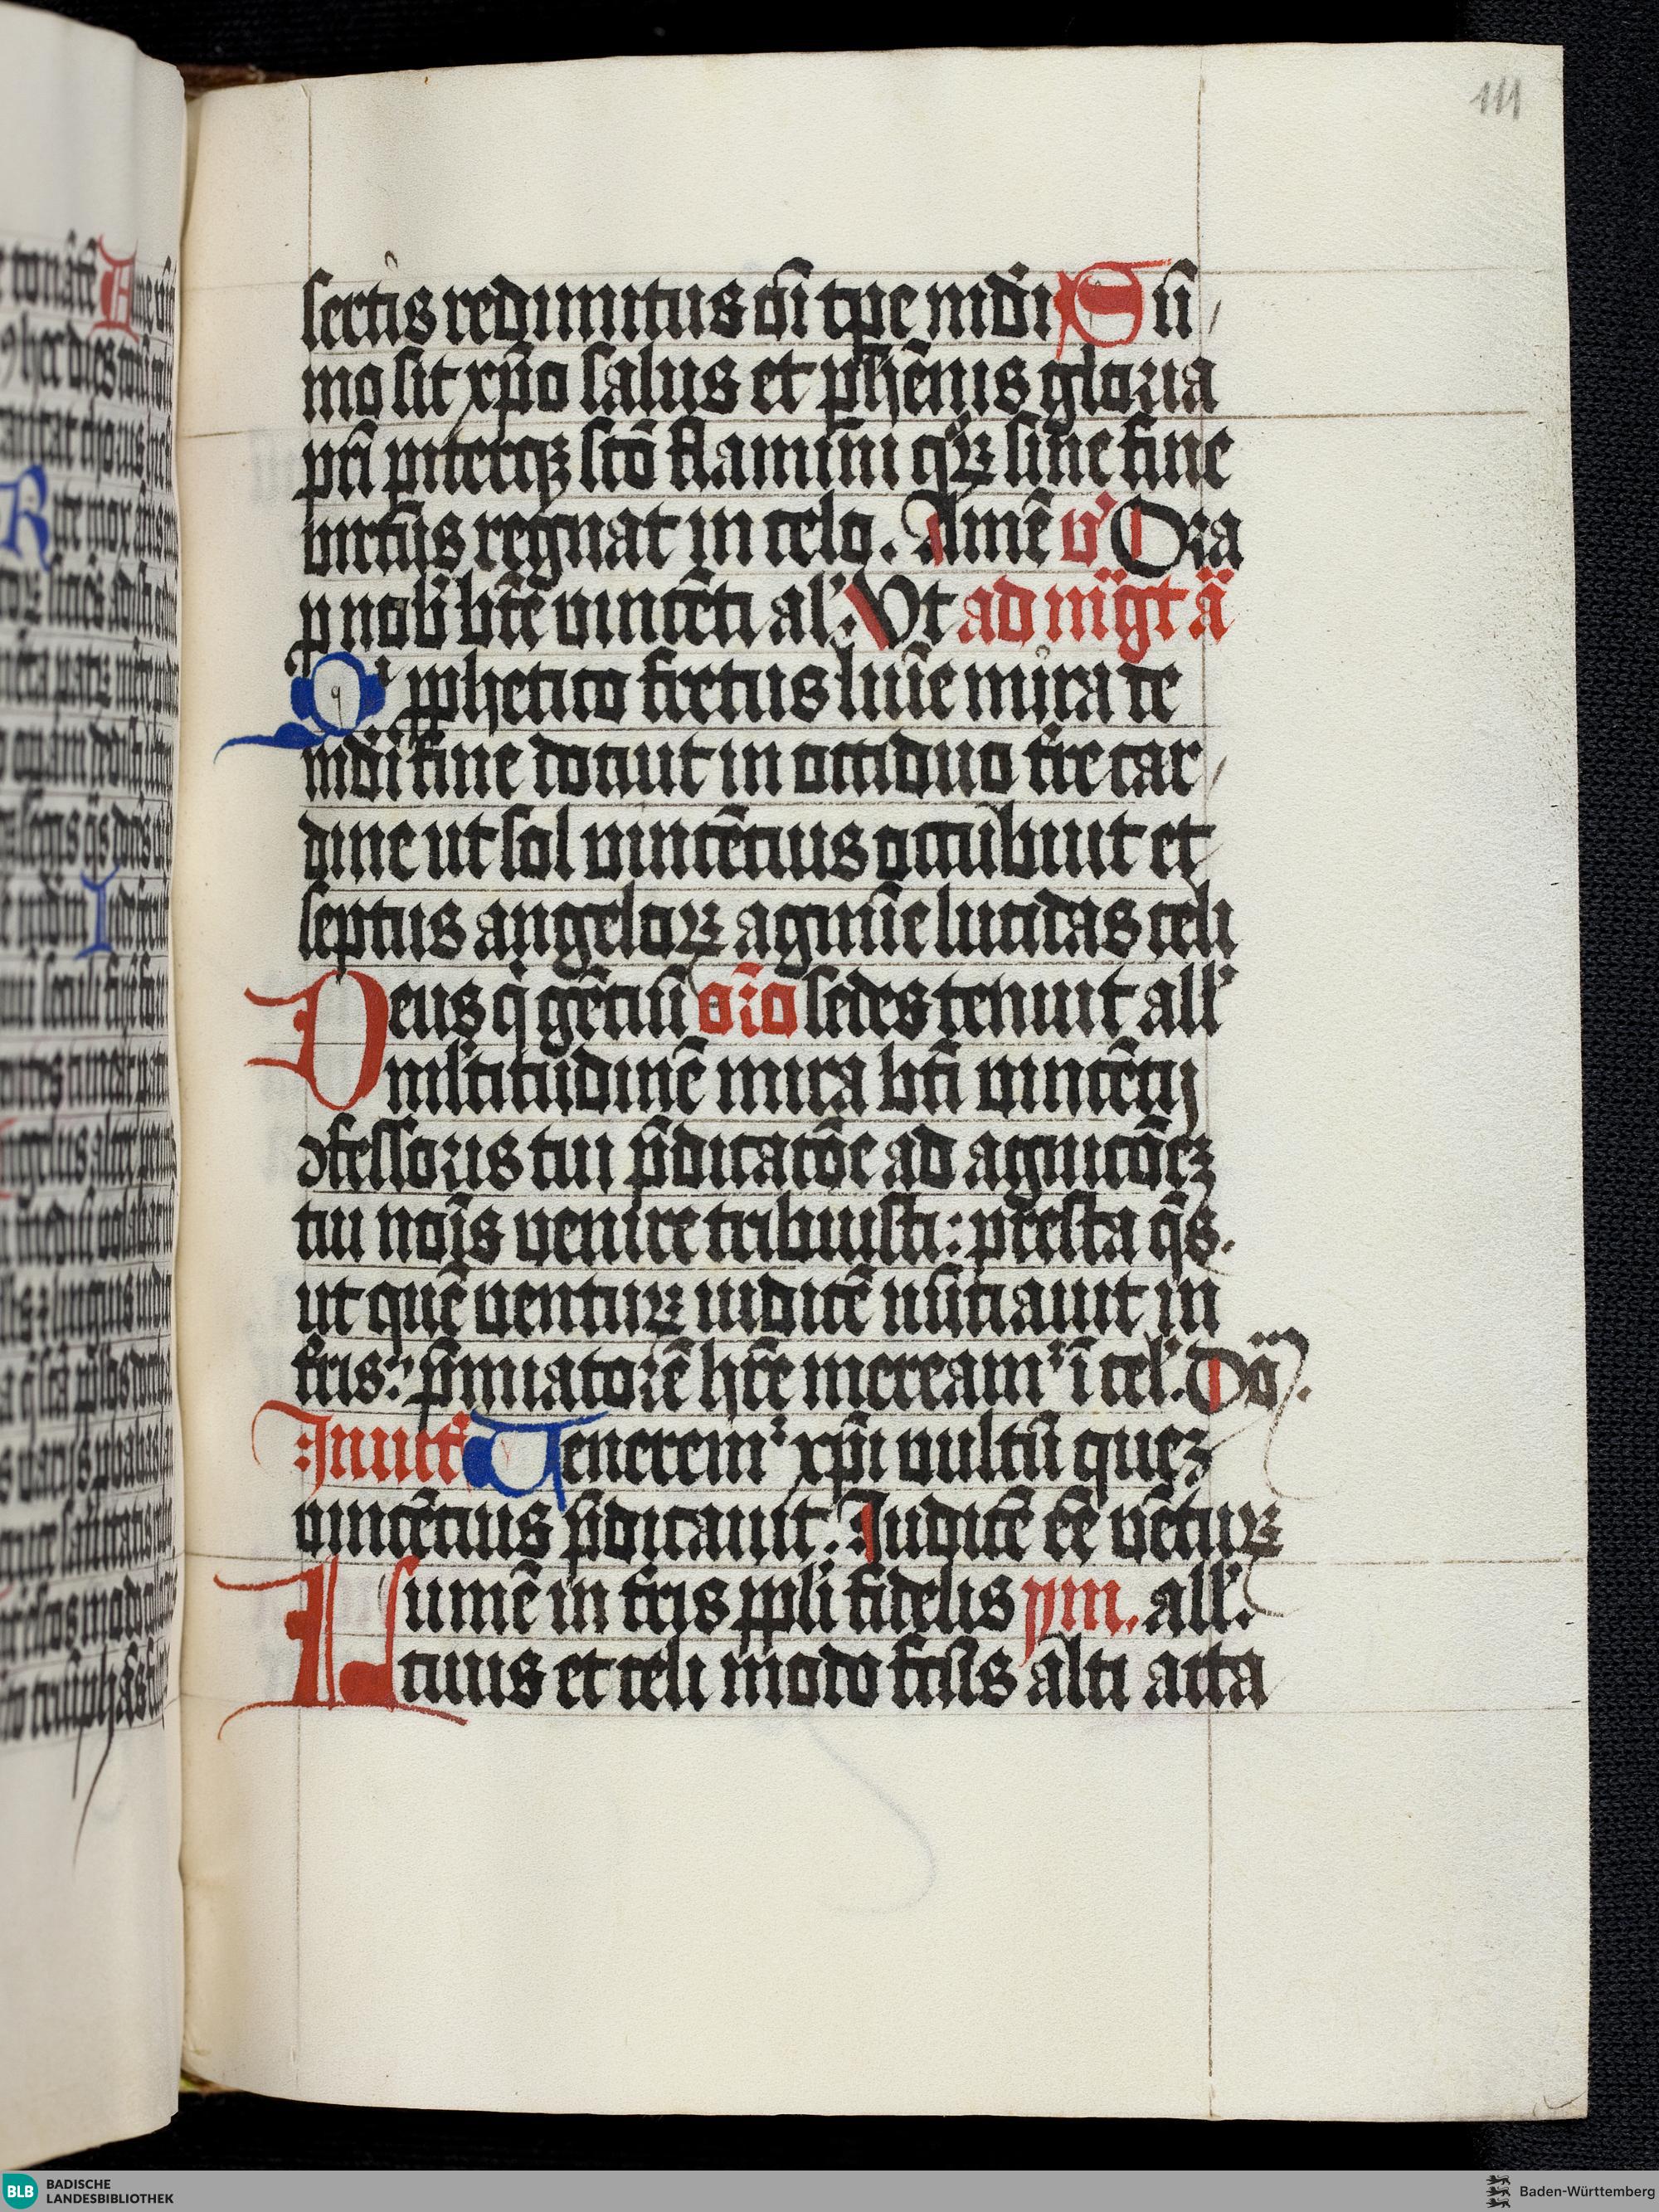 111
sertis redimitus cū tpe mdi Sū
mo sit xp̄o salus et phēnis gloria
pr̄i pniterqꝫ sc̄o flamini qꝛ sine fine
virtus regnat in celo. Amē v̕ Ora
p nob̕ bt̄e vincēti al̕. Vt ad mg̈t ä
Qͥ pphetico fretus lum̄e mira de
mdi fine docuit in occiduo t̄re car
dine ut sol vincētius occubuit et
septus angeloꝝ agmīe lucidas celi
Deus qͥ gētiū or̄o sedes tenuit all̕
mlͭitudinē mira bt̄i vincētij
ꝯfessoris tui p̄dicatōe ad agnicōeꝫ
tui noīs venire tribuisti: presta q̄s.
ut quē ventuꝝ iudicē nūtiauit in
t̄ris: p̄miatorē hr̄e mereamͬ ī cel̕. Dö.
Inuit̕ Veneremͬ xp̄i vultū queꝫ
vincētius p̄dicauit. Iudicē eē vētuꝝ
umē in t̄ris ppl̕i fidelis ym. all̕.
tiuus et celi modo festis alti acta
BLB BADISCHE
LANDESBIBLIOTHEK
Baden-Württemberg